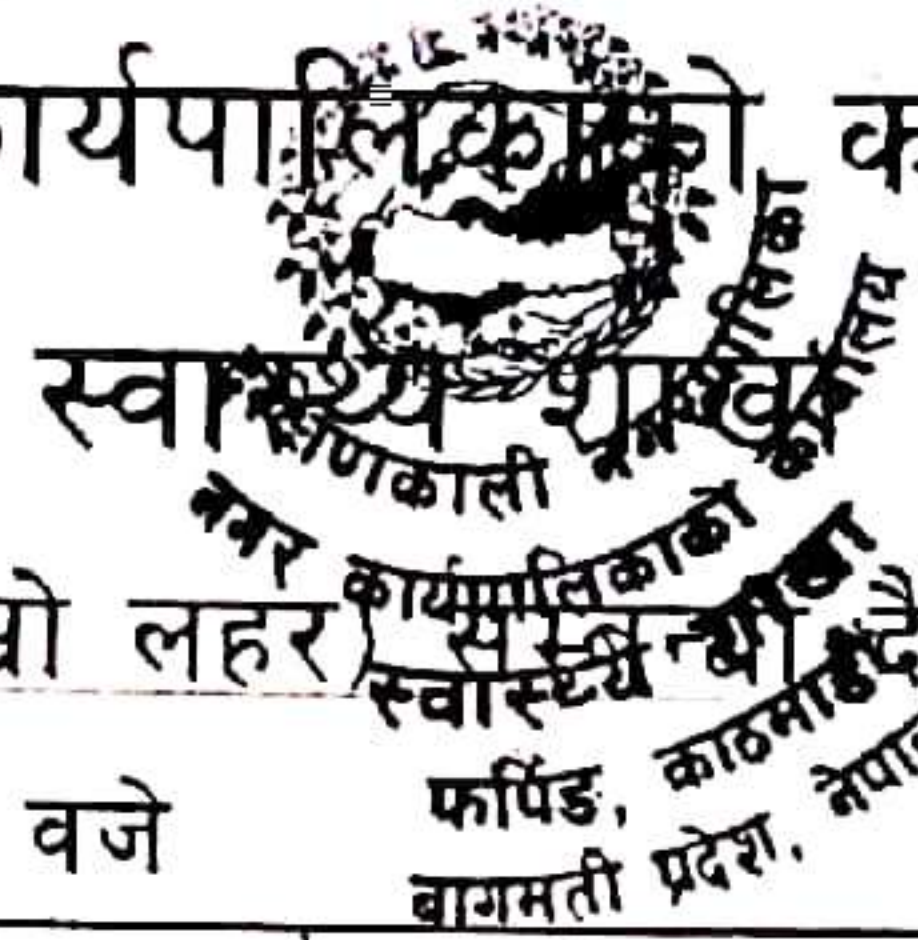 ार्यपालिकाको क
स्वास्थ्य शाखा
लहर) सम्बन्धी दै
वजे
दक्षिणकाली नगरपालिका
नगर कार्यपालिकाको कार्यालय
स्वास्थ्य शाखा
फर्पिङ, काठमाडौं
बागमती प्रदेश, नेपाल